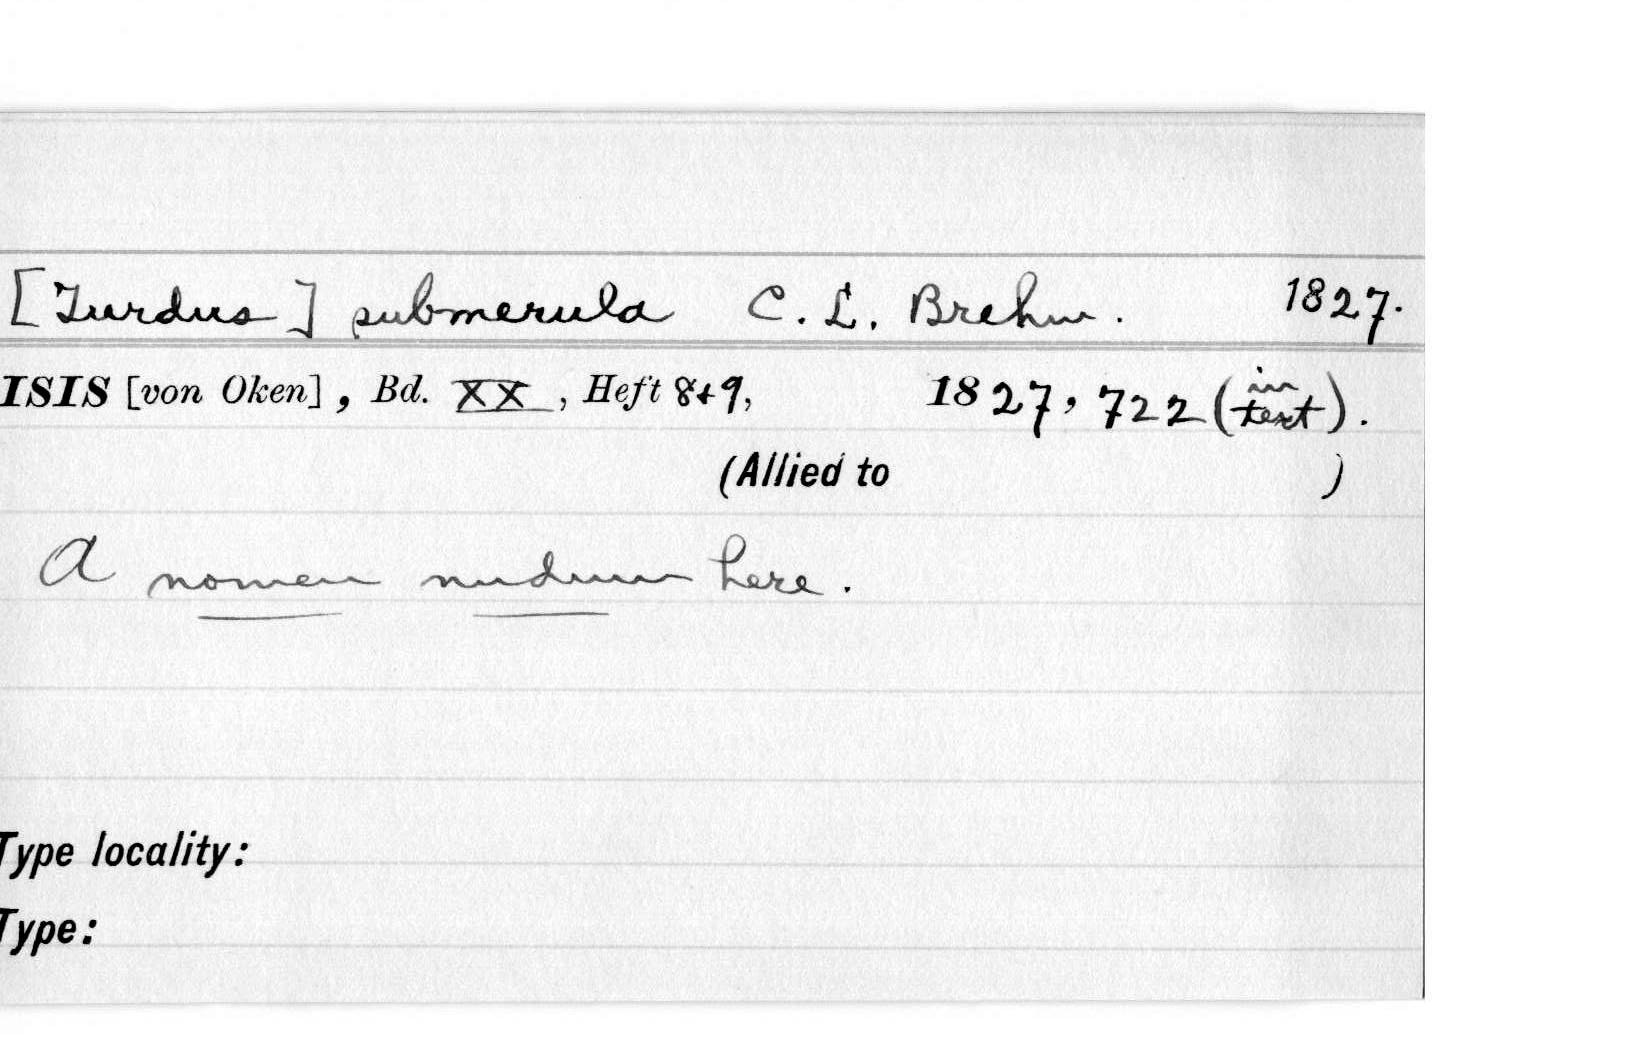 [Turdus] submerula C. L. Brehm. 1827.
ISIS [von Oken], Bd. XX, Heft 8+9, 1827, 722 (in text).
(Allied to )
A nomen nudum here.
Type locality:
Type: